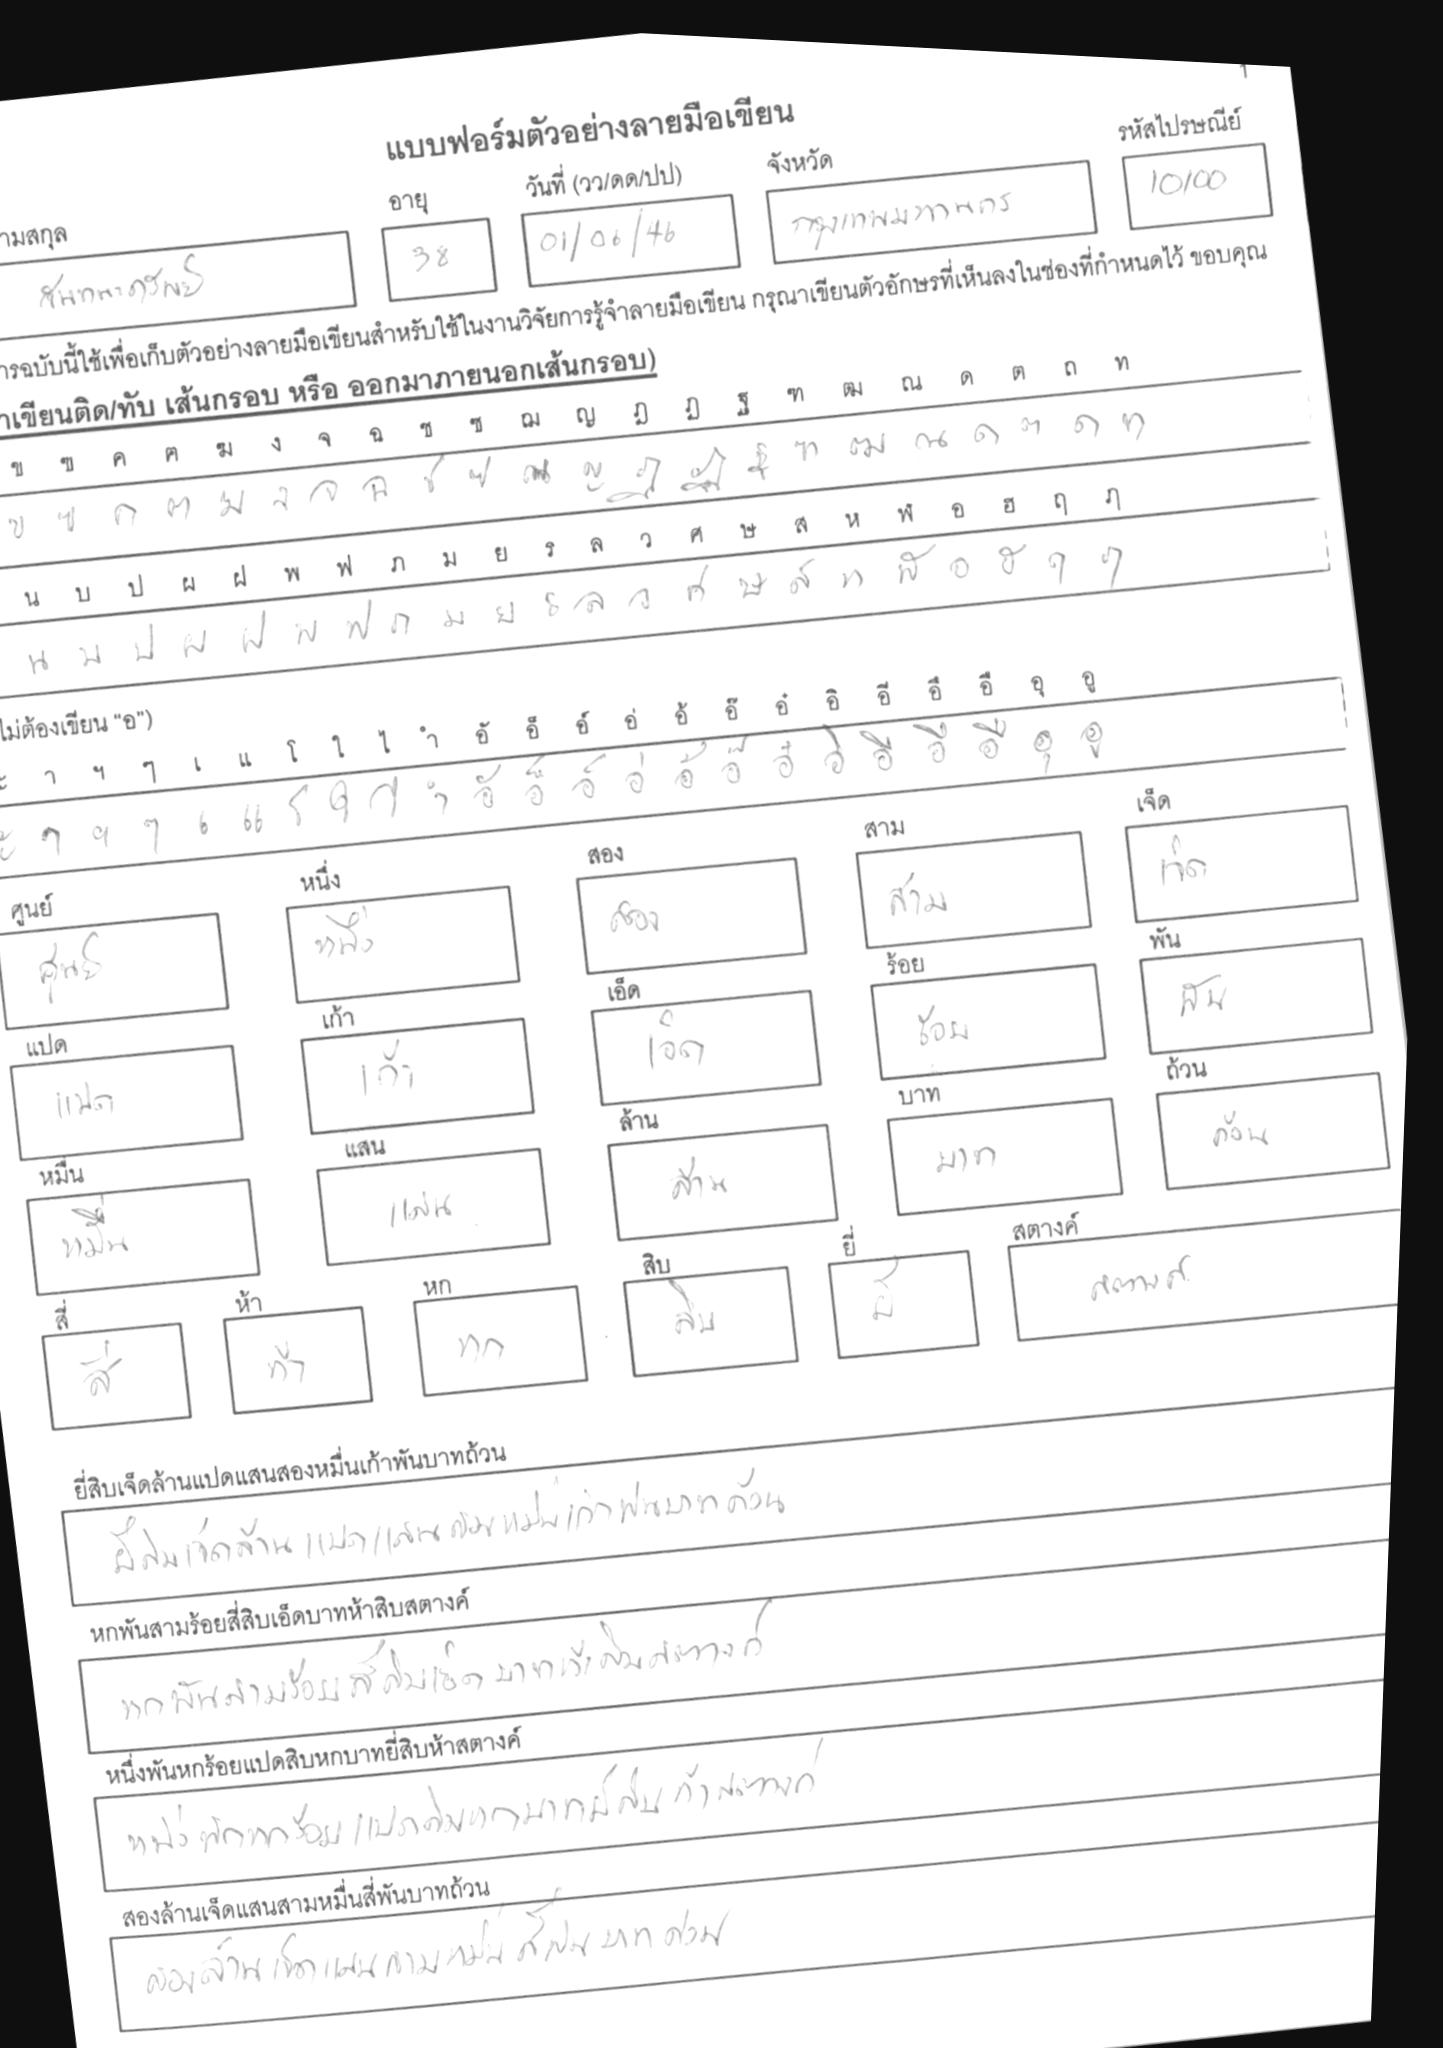 1
แบบฟอร์มตัวอย่างลายมือเขียน
ามสกุล อายุ วันที่ (วว/ดด/ปป) จังหวัด รหัสไปรษณีย์
38 01/06/46 กรุงเทพมหานคร 10100
ารฉบับนี้ใช้เพื่อเก็บตัวอย่างลายมือเขียนสำหรับใช้ในงานวิจัยการรู้จำลายมือเขียน กรุณาเขียนตัวอักษรที่เห็นลงในช่องที่กำหนดไว้ ขอบคุณ
าเขียนติด/ทับ เส้นกรอบ หรือ ออกมาภายนอกเส้นกรอบ)
ข ฃ ค ฅ ฆ ง จ ฉ ช ซ ฌ ญ ฎ ฏ ฐ ฑ ฒ ณ ด ต ถ ท
ข ฃ ค ฅ ฆ ง จ ฉ ช ซ ฌ ญ ฎ ฏ ฐ ฑ ฒ ณ ด ต ถ ท
น บ ป ผ ฝ พ ฟ ภ ม ย ร ล ว ศ ษ ส ห ฬ อ ฮ ฤ ฦ
น บ ป ผ ฝ พ ฟ ภ ม ย ร ล ว ศ ษ ส ห ฬ อ ฮ ฤ ฦ
ไม่ต้องเขียน "อ")
ะ า ฯ ๆ เ แ โ ใ ไ ำ อั อ็ อ์ อ่ อ้ อ๊ อ๋ อิ อี อึ อื อุ อู
ะ า ฯ ๆ เ แ โ ใ ไ ำ อั อ็ อ์ อ่ อ้ อ๊ อ๋ อิ อี อึ อื อุ อู
ศูนย์ หนึ่ง สอง สาม เจ็ด
ศูนย์ หนึ่ง สอง สาม เจ็ด
แปด เก้า เอ็ด ร้อย พัน
แปด เก้า เอ็ด ร้อย พัน
หมื่น แสน ล้าน บาท ถ้วน
หมื่น แสน ล้าน บาท ถ้วน
สี่ ห้า หก สิบ ยี่ สตางค์
สี่ ห้า หก สิบ ยี่ สตางค์
ยี่สิบเจ็ดล้านแปดแสนสองหมื่นเก้าพันบาทถ้วน
ยี่สิบเจ็ดล้านแปดแสนสองหมื่นเก้าพันบาทถ้วน
หกพันสามร้อยสี่สิบเอ็ดบาทห้าสิบสตางค์
หกพันสามร้อยสี่สิบเอ็ดบาทห้าสิบสตางค์
หนึ่งพันหกร้อยแปดสิบหกบาทยี่สิบห้าสตางค์
หนึ่งพันหกร้อยแปดสิบหกบาทยี่สิบห้าสตางค์
สองล้านเจ็ดแสนสามหมื่นสี่พันบาทถ้วน
สองล้านเจ็ดแสนสามหมื่นสี่พันบาทถ้วน